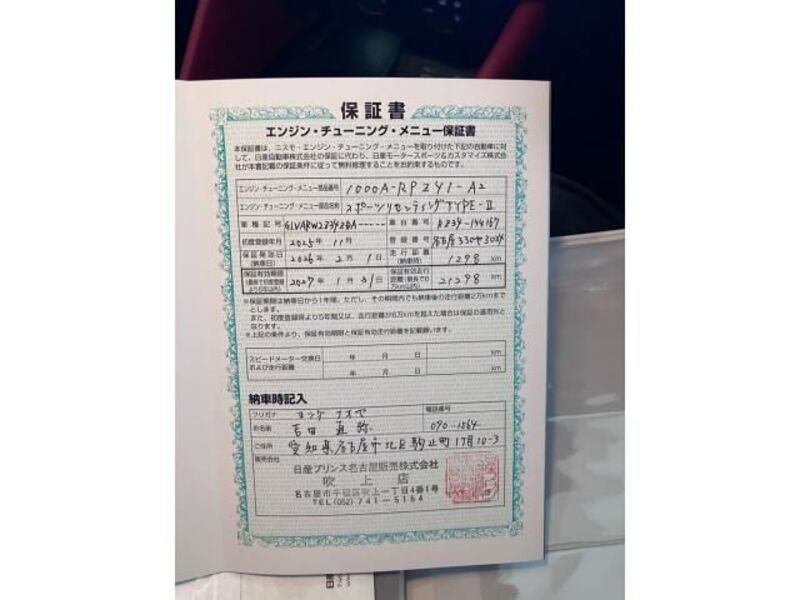 保証書
エンジン・チューニング・メニュー保証書
本保証書は、ニスモ・エンジン・チューニング・メニューを取り付けた下記の自動車に対
して、日産自動車株式会社の保証に代わり、日産モータースポーツ&カスタマイズ株式会
社が本書記載の保証条件に従って無料修理することをお約束するものです。
エンジン・チューニング・メニュー部品番号 1000A-RPZ41-A2
エンジン・チューニング・メニュー部品名称 スポーツリセッティングTYPE-II
車種記号 GLVARWZZ34ZDA----- 車台番号 RZ34-
初度登録年月 2025年 11月 登録番号 名古屋330
保証発効日 (納車日) 2026年 2月 1日 走行距離 (納車時) 1298 km
保証有効期限 2027年 1月 31日 保証有効走行距離 21298 km
※保証期間は納車日から1年間、ただし、その期間内でも納車後の走行距離2万kmまで
とします。
また、初度登録時より5年間又は、走行距離が6万kmを超えた場合は保証の適用外と
なります。
※上記の条件より、保証有効期限と保証有効走行距離を記載願います。
スピードメーター交換日 年 月 日 km
および走行距離 年 月 日 km
納車時記入
フリガナ 電話番号
お名前 吉田 直弥 090-1564
ご住所 愛知県名古屋市北区駒止町1丁目10-3
販売会社
日産プリンス名古屋販売株式会社
吹上店
名古屋市千種区吹上一丁目4番1号
TEL(052)741-5154